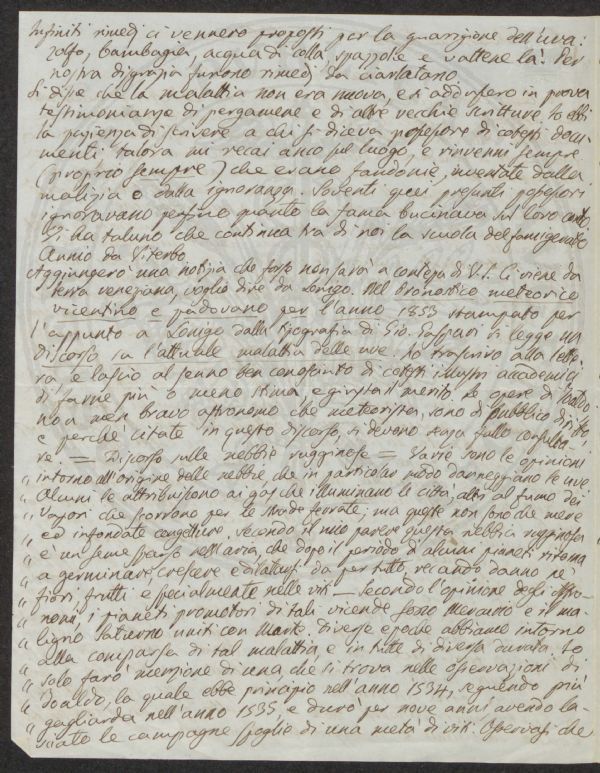 Infiniti rimedj ci vennero proposti per la guarigione dell'uva:
zolfo, bambagia, acqua di colla, spazzole e vattene là! Per
nostra disgrazia furono rimedj da ciarlatano.
Si disse che la malattia non era nuova, e si addussero in prova
testimonianze di pergamene e di altre vecchie scritture. Io ebbi
la pazienza di scrivere a chi si diceva possessore di cotesti docu-
menti talora mi recai anco sul luogo, e rinvenni sempre
(proprio sempre) che erano fandonie, inventate dalla
malizia o dalla ignoranza. Soventi quei presunti possessori
ignoravano persino quanto la fama bucinava sul loro conto.
Vi ha taluno che continua tra di noi la scuola del famigerato
Annio da Viterbo.
Aggiungerò una notizia che forse non sarà a contezza di V.S. Ci viene da
terra veneziana, voglio dire da Lonigo. Nel Pronostico meteorico
vicentino e padovano per l'anno 1853 stampato per
l'appunto a Lonigo dalla tipografia di Gio. si legge un
Discorso su l'attuale malattia delle uve. Io trascrivo alla lette-
ra e lascio al senno ben conosciuto di cotesti illustri accademici
di farne più o meno stima, e giusta il merito. Le opere di Toaldo
non men bravo astronomo che meteorista, sono di pubblico diritto
e perchè citate in questo discorso, si devono senza fallo consulta-
re. = Discorso sulle nebbie rugginose = Varie sono le opinioni
" intorno all'origine delle nebbie, che in particolar modo danneggiano le uve
" Alcuni le attribuiscono ai gas che illuminano le città, altri al fumo dei
" vapori che scorrono per le strade ferrate; ma queste non sono che mere
" ed infondate congetture. Secondo il mio parere questa nebbia rugginosa
" è un seme sparso nell'aria, che dopo il periodo di alcuni pianeti ritorna
" a germinare, crescere e dilatarsi da per tutto, recando danno ne'
" fiori frutti e specialmente nelle viti — Secondo l'opinione degli astro-
" nomi, i pianeti promotori di tali vicende sono Mercurio e il ma-
" ligno Saturno uniti con Marte. Diverse epoche abbiamo intorno
" alla comparsa di tal malattia, e in tutte di diversa durata. Io
" solo farò menzione di una che si trova nelle osservazioni di
" Toaldo, la quale ebbe principio nell'anno 1534, seguendo più
" gagliarda nell'anno 1535, e durò per nove anni avendo la-
" sciato le campagne spoglie di una metà di viti. Osservasi che